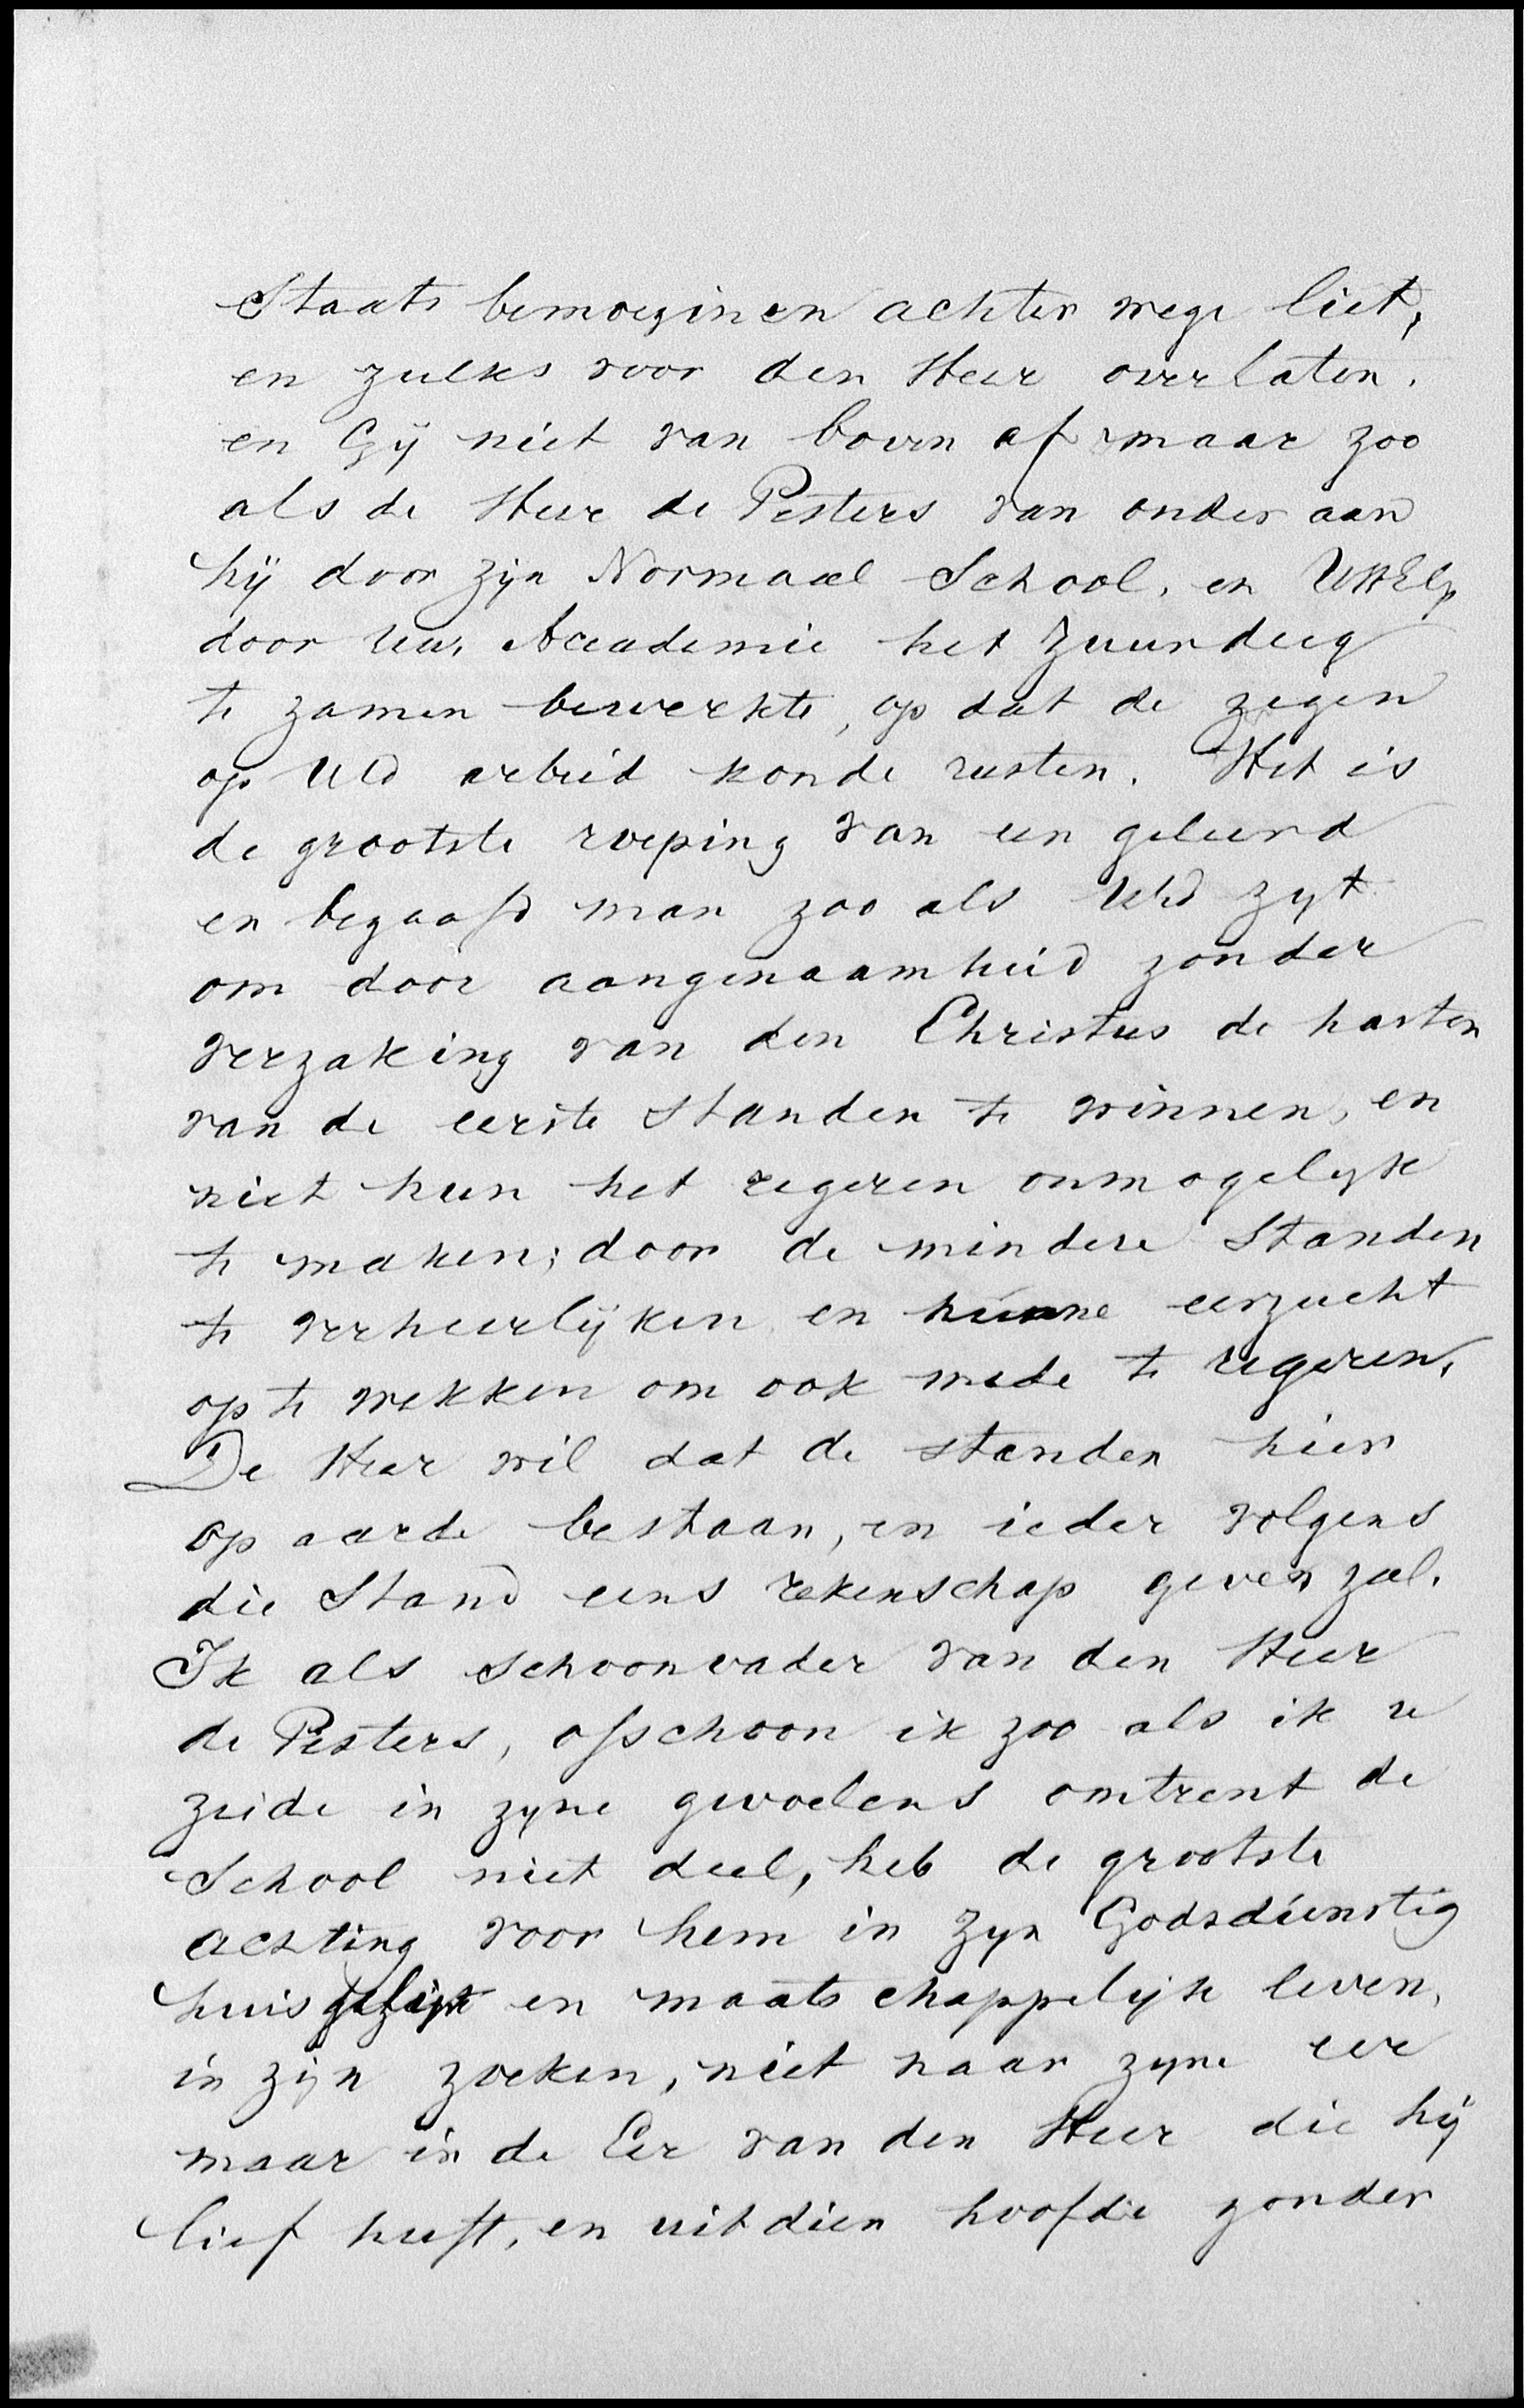 Staats bemoeginen achter wege liet,
en zulks voor den Heer overlaten.
en Gij niet van boven af maar zoo
als de Heer de Pesters van onder aan
hij door zijn Normaal School, en UHElg
door uw, Accademie het Zuurdeeg
te zamen bewerkte, op dat de zegen
op UEd arbeid konde rusten. Het is
de grootste roeping van een geleerd
en begaafd man zoo als UEd zyt
om door aangenaamheid zonder
verzaking van den Christus de harten
van de eerste Standen te winnen, en
niet hun het regeren onmogelyk
te maken; door de mindere Standen
te verheerlijken en hunne eerzucht
op te wekken om ook mede te regeren.
De Heer wil dat de standen hier
op aarde bestaan, en ieder volgens
die Stand eens rekenschap geven zal.
Ik als Schoonvader van den Heer
de Pesters, ofschoon ik zoo als ik u
zeide in zyne gevoelens omtrent de
School niet deel, heb de grootste
achting voor hem in Zyn Godsdienstig
huis en maatschappelijk leven,
in zijn zoeken, niet naar zyne eer
maar in de Eer van den Heer die hij
lief heeft, en uit dien hoofde zonder